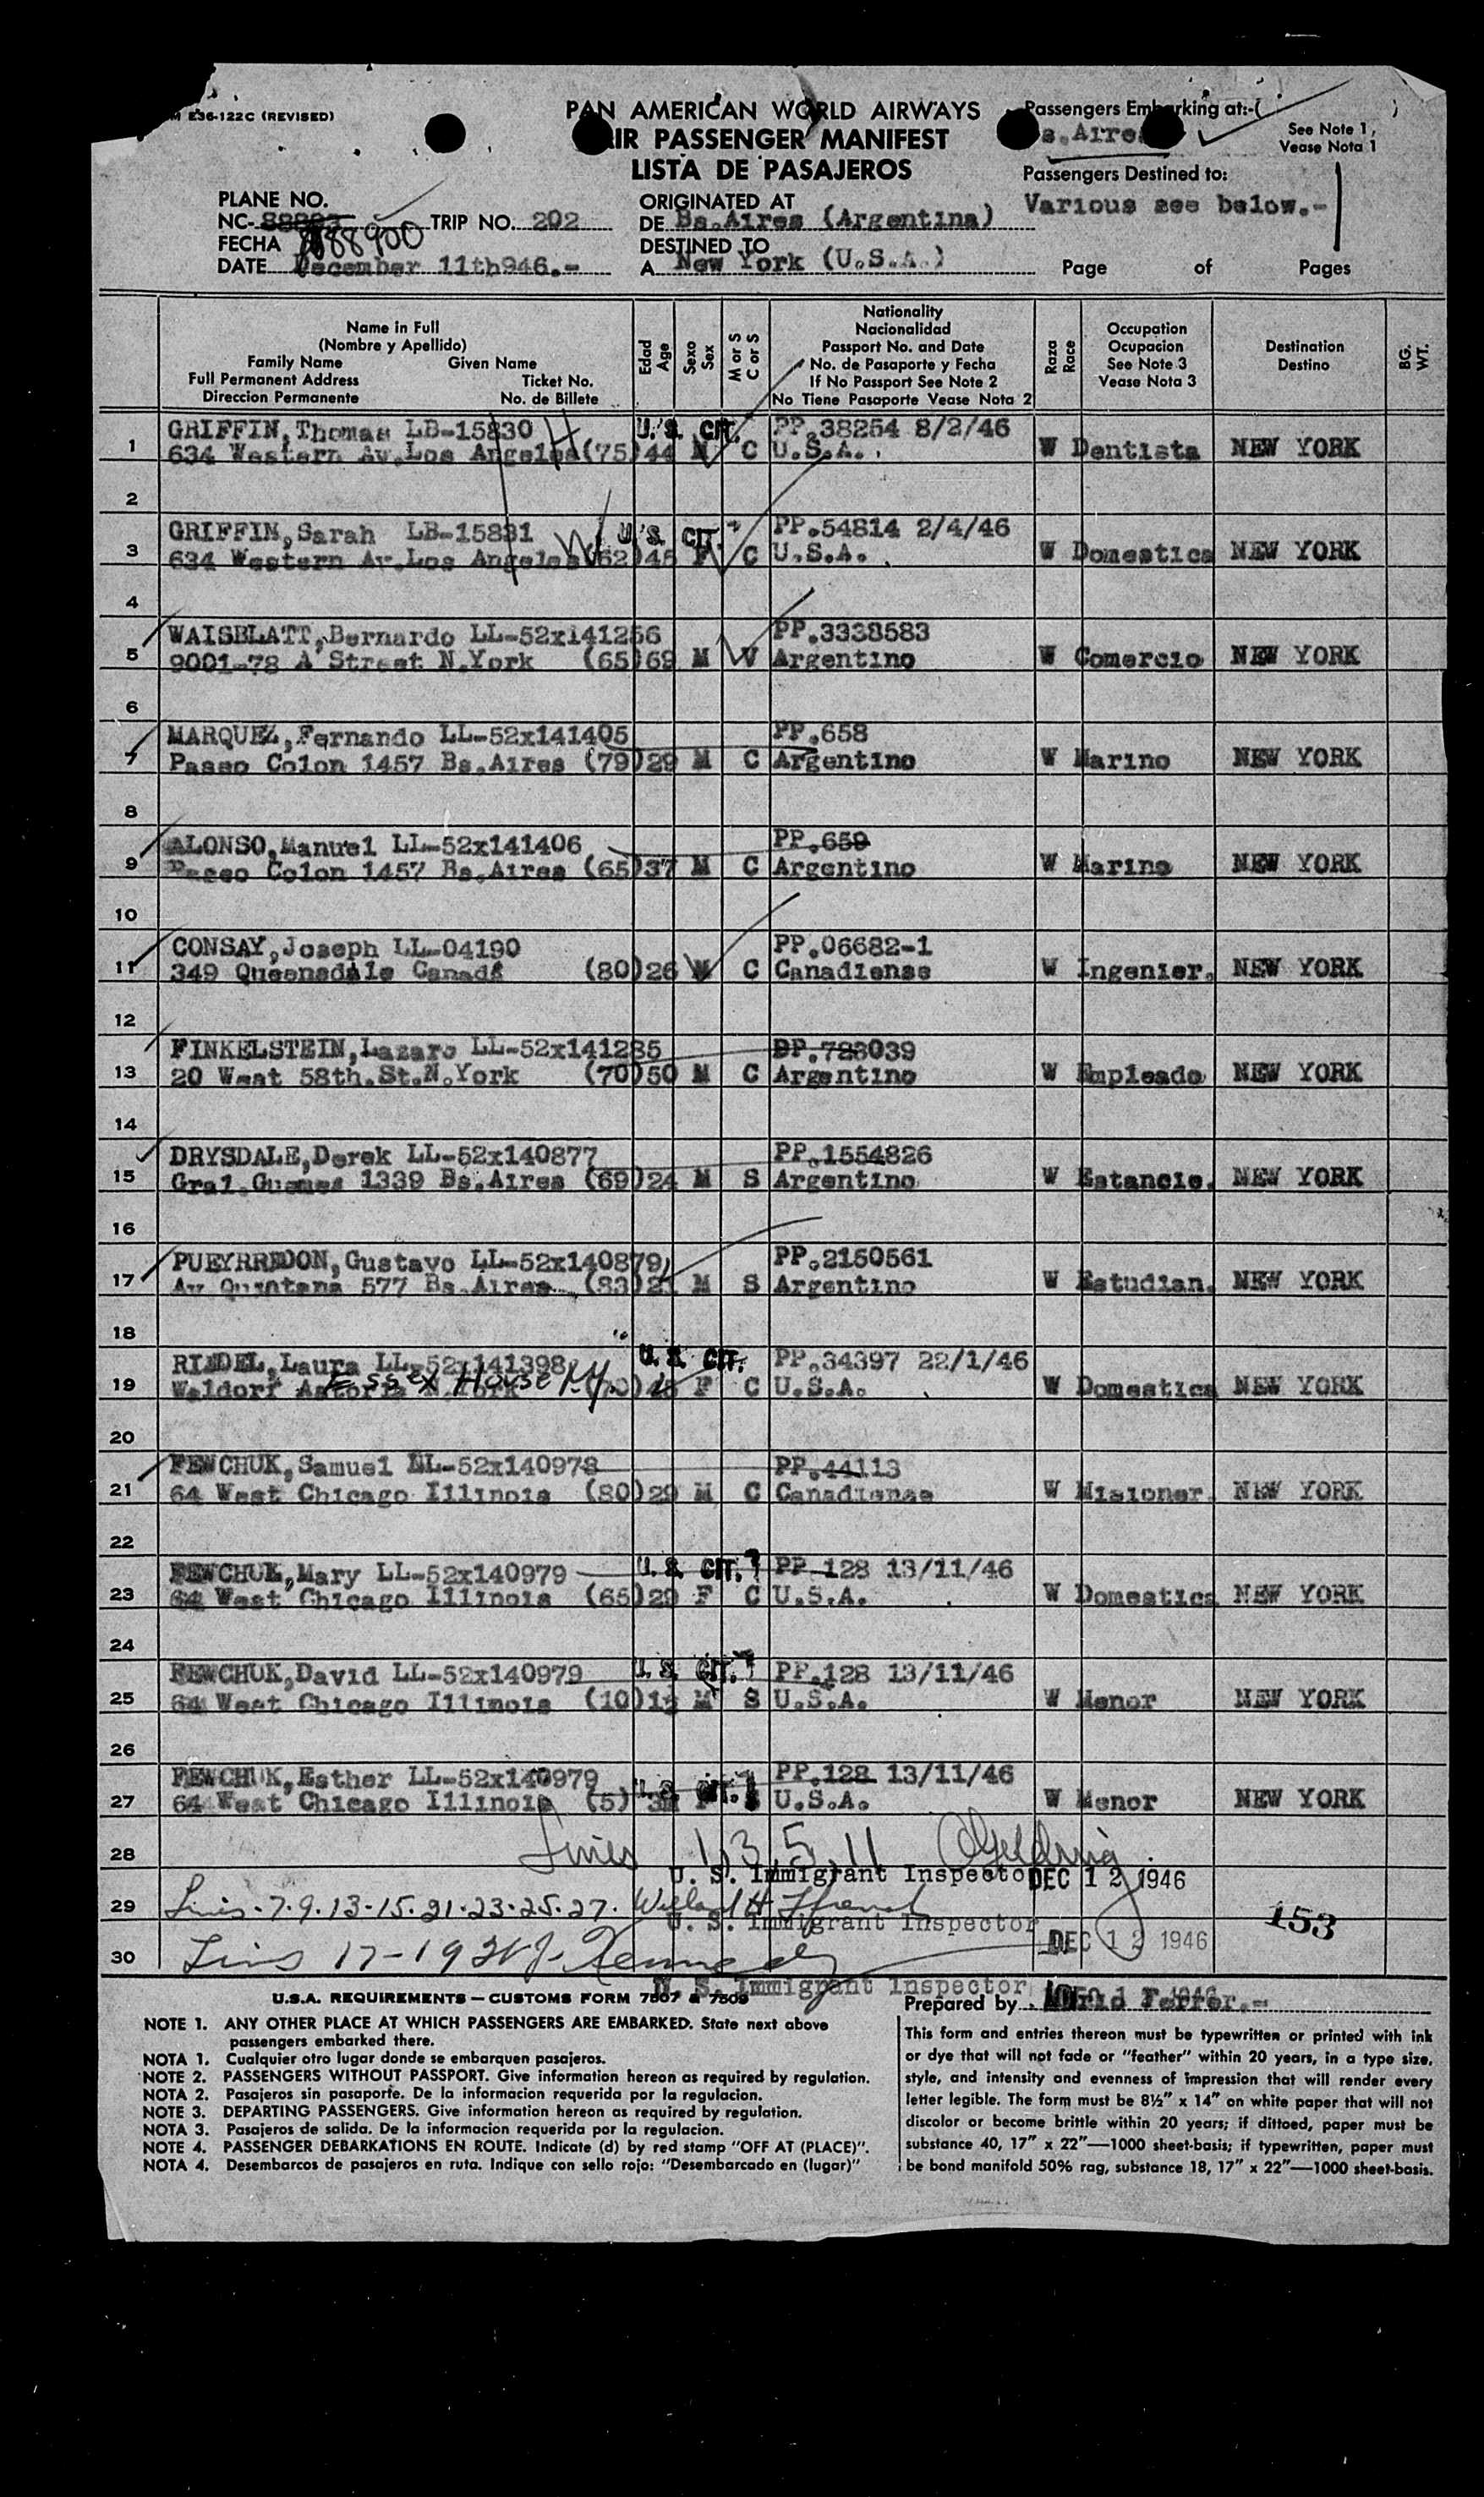 E36-122C (REVISED)
PAN AMERICAN WORLD AIRWAYS
AIR PASSENGER MANIFEST
LISTA DE PASAJEROS
Passengers Embarking at:-(
Bs.Aires
See Note 1,
Vease Nota 1
Passengers Destined to:
Various see below.-
PLANE NO.
NC- 88900 TRIP NO. 202
FECHA
DATE December 11th946.-
ORIGINATED AT
DE Bs.Aires (Argentina)
DESTINED TO
A New York (U.S.A.)
Page of Pages
Name in Full
(Nombre y Apellido)
Family Name Given Name
Full Permanent Address Ticket No.
Direccion Permanente No. de Billete
Edad
Age
Sexo
Sex
M or S
C or S
Nationality
Nacionalidad
Passport No. and Date
No. de Pasaporte y Fecha
If No Passport See Note 2
No Tiene Pasaporte Vease Nota 2
Raza
Race
Occupation
Ocupacion
See Note 3
Vease Nota 3
Destination
Destino
BG.
WT.
GRIFFIN,Thomas LB-15830 U.S. CIT. PP.38254 8/2/46
1 634 Western Av.Los Angeles(75)44 M C U.S.A. W Dentista NEW YORK
2
GRIFFIN,Sarah LB-15831 U.S. CIT. PP.54814 2/4/46
3 634 Western Av.Los Angeles(62)45 F C U.S.A. W Domestica NEW YORK
4
WAISBLATT,Bernardo LL-52x141256 PP.3338583
5 9001-78 A Street N.York (65)69 M V Argentino W Comercio NEW YORK
6
MARQUEZ,Fernando LL-52x141405 PP.658
7 Paseo Colon 1457 Bs.Aires (79)29 M C Argentino W Marino NEW YORK
8
ALONSO,Manuel LL-52x141406 PP.659
9 Paseo Colon 1457 Bs.Aires (65)37 M C Argentino W Marino NEW YORK
10
CONSAY,Joseph LL-04190 PP.06682-1
11 349 Queensdale Canadá (80)26 M C Canadiense W Ingenier. NEW YORK
12
FINKELSTEIN,Lazaro LL-52x141285 PP.783039
13 20 West 58th.St.N.York (70)50 M C Argentino W Empleado NEW YORK
14
DRYSDALE,Derek LL-52x140877 PP.1554826
15 Gral.Guemes 1339 Bs.Aires (69)24 M S Argentino W Estancie. NEW YORK
16
PUEYRREDON,Gustavo LL-52x140879 PP.2150561
17 Av Quintana 577 Bs.Aires (83)21 M S Argentino W Estudian. NEW YORK
18
RIEDEL,Laura LL-52x141398 U.S. CIT. PP.34397 22/1/46
Essex House NY.
19 Waldorf Astoria N.York F C U.S.A. W Domestica NEW YORK
20
FEWCHUK,Samuel LL-52x140978 PP.44113
21 64 West Chicago Illinois (80)29 M C Canadiense W Misioner. NEW YORK
22
FEWCHUK,Mary LL-52x140979 U.S. CIT. PP 128 13/11/46
23 64 West Chicago Illinois (65)29 F C U.S.A. W Domestica NEW YORK
24
FEWCHUK,David LL-52x140979 U.S. CIT. PP.128 13/11/46
25 64 West Chicago Illinois (10) M S U.S.A. W Menor NEW YORK
26
FEWCHUK,Esther LL-52x140979 U.S. CIT. PP.128 13/11/46
27 64 West Chicago Illinois (5) F S U.S.A. W Menor NEW YORK
28 Lines 1,3,5,11
U. S. Immigrant Inspector DEC 12 1946
29 Lines-7-9-13-15-21-23-25-27. Willard H.
U. S. Immigrant Inspector 153
DEC 12 1946
30 Lines 17-19 Kennedy
U. S. Immigrant Inspector
U.S.A. REQUIREMENTS — CUSTOMS FORM 7507 & 7509
Prepared by Mario Ferrer.-
NOTE 1. ANY OTHER PLACE AT WHICH PASSENGERS ARE EMBARKED. State next above
passengers embarked there.
NOTA 1. Cualquier otro lugar donde se embarquen pasajeros.
NOTE 2. PASSENGERS WITHOUT PASSPORT. Give information hereon as required by regulation.
NOTA 2. Pasajeros sin pasaporte. De la informacion requerida por la regulacion.
NOTE 3. DEPARTING PASSENGERS. Give information hereon as required by regulation.
NOTA 3. Pasajeros de salida. De la informacion requerida por la regulacion.
NOTE 4. PASSENGER DEBARKATIONS EN ROUTE. Indicate (d) by red stamp "OFF AT (PLACE)".
NOTA 4. Desembarcos de pasajeros en ruta. Indique con sello rojo: "Desembarcado en (lugar)"
This form and entries thereon must be typewritten or printed with ink
or dye that will not fade or "feather" within 20 years, in a type size,
style, and intensity and evenness of impression that will render every
letter legible. The form must be 8½" x 14" on white paper that will not
discolor or become brittle within 20 years; if dittoed, paper must be
substance 40, 17" x 22"—1000 sheet-basis; if typewritten, paper must
be bond manifold 50% rag, substance 18, 17" x 22"—1000 sheet-basis.